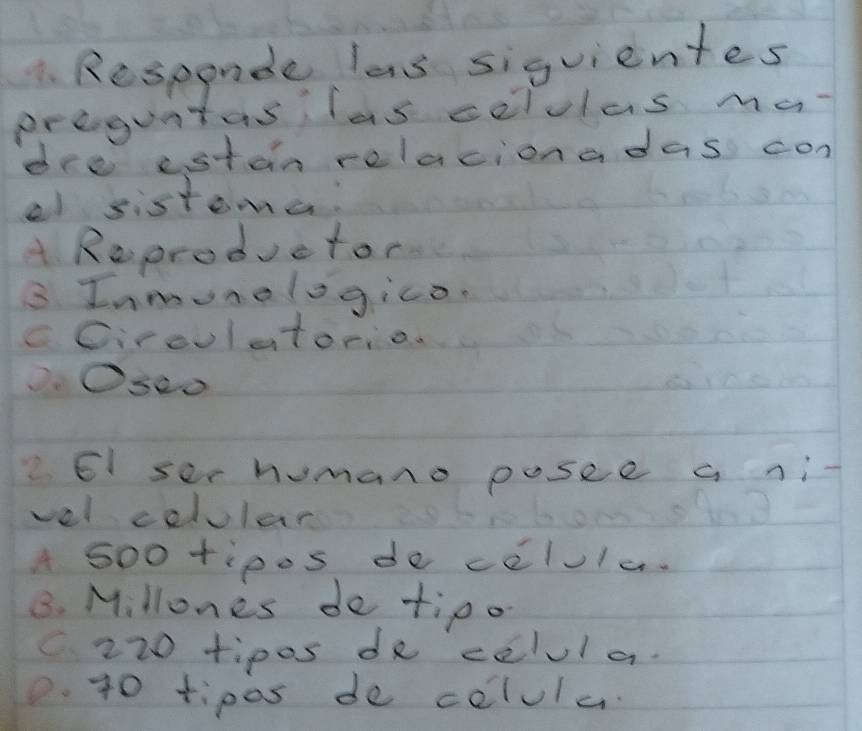 1. Responde las siguientes
preguntas: las células ma-
dre están relacionadas con
el sistema:
A Reproductor
B Inmunologico.
C Circulatorio.
D. Oseo
2. El ser humano posee a ni-
vel celular
A 500 tipos de célula.
B. Millones de tipo
C. 220 tipos de célula.
D. 70 tipos de célula.